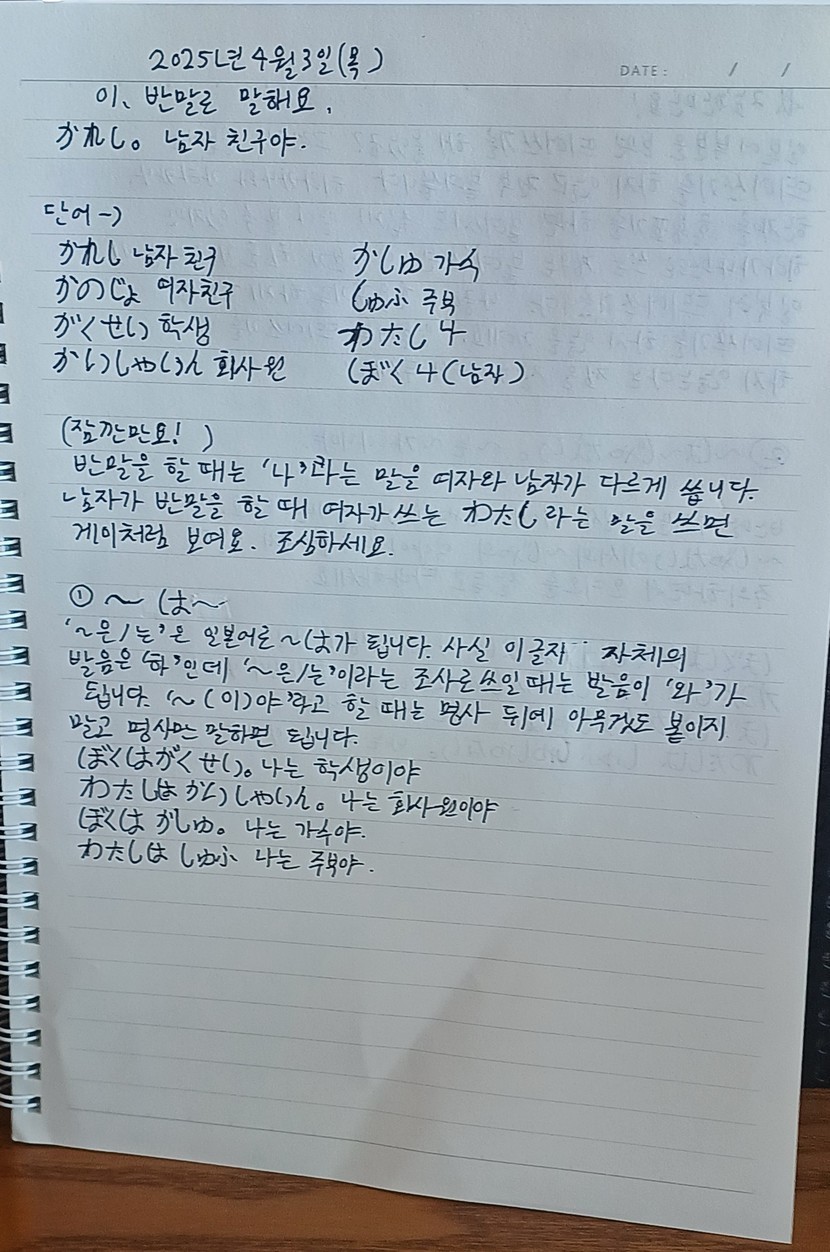 2025년 4월 3일(목)
DATE : / /
01. 반말로 말해요.
かれし。 남자 친구야.
단어→)
かれし 남자 친구 かしゅ 가수
かのじょ 여자친구 しゅふ 주부
がくせい 학생 わたし 나
かいしゃいん 회사원 ぼく 나(남자)
(잠깐만요! )
반말을 할 때는 '나'라는 말을 여자와 남자가 다르게 씁니다.
남자가 반말을 할 때 여자가 쓰는 わたし라는 말을 쓰면
게이처럼 보여요. 조심하세요.
① ~ は~
'~은/는'은 일본어로 ~は가 됩니다. 사실 이 글자 자체의
발음은 '하'인데 '~은/는'이라는 조사로 쓰일 때는 발음이 '와'가
됩니다. '~(이)야'라고 할 때는 명사 뒤에 아무것도 붙이지
말고 명사만 말하면 됩니다.
ぼくはがくせい。 나는 학생이야
わたしは かいしゃいん。 나는 회사원이야
ぼくは かしゅ。 나는 가수야.
わたしは しゅふ 나는 주부야.